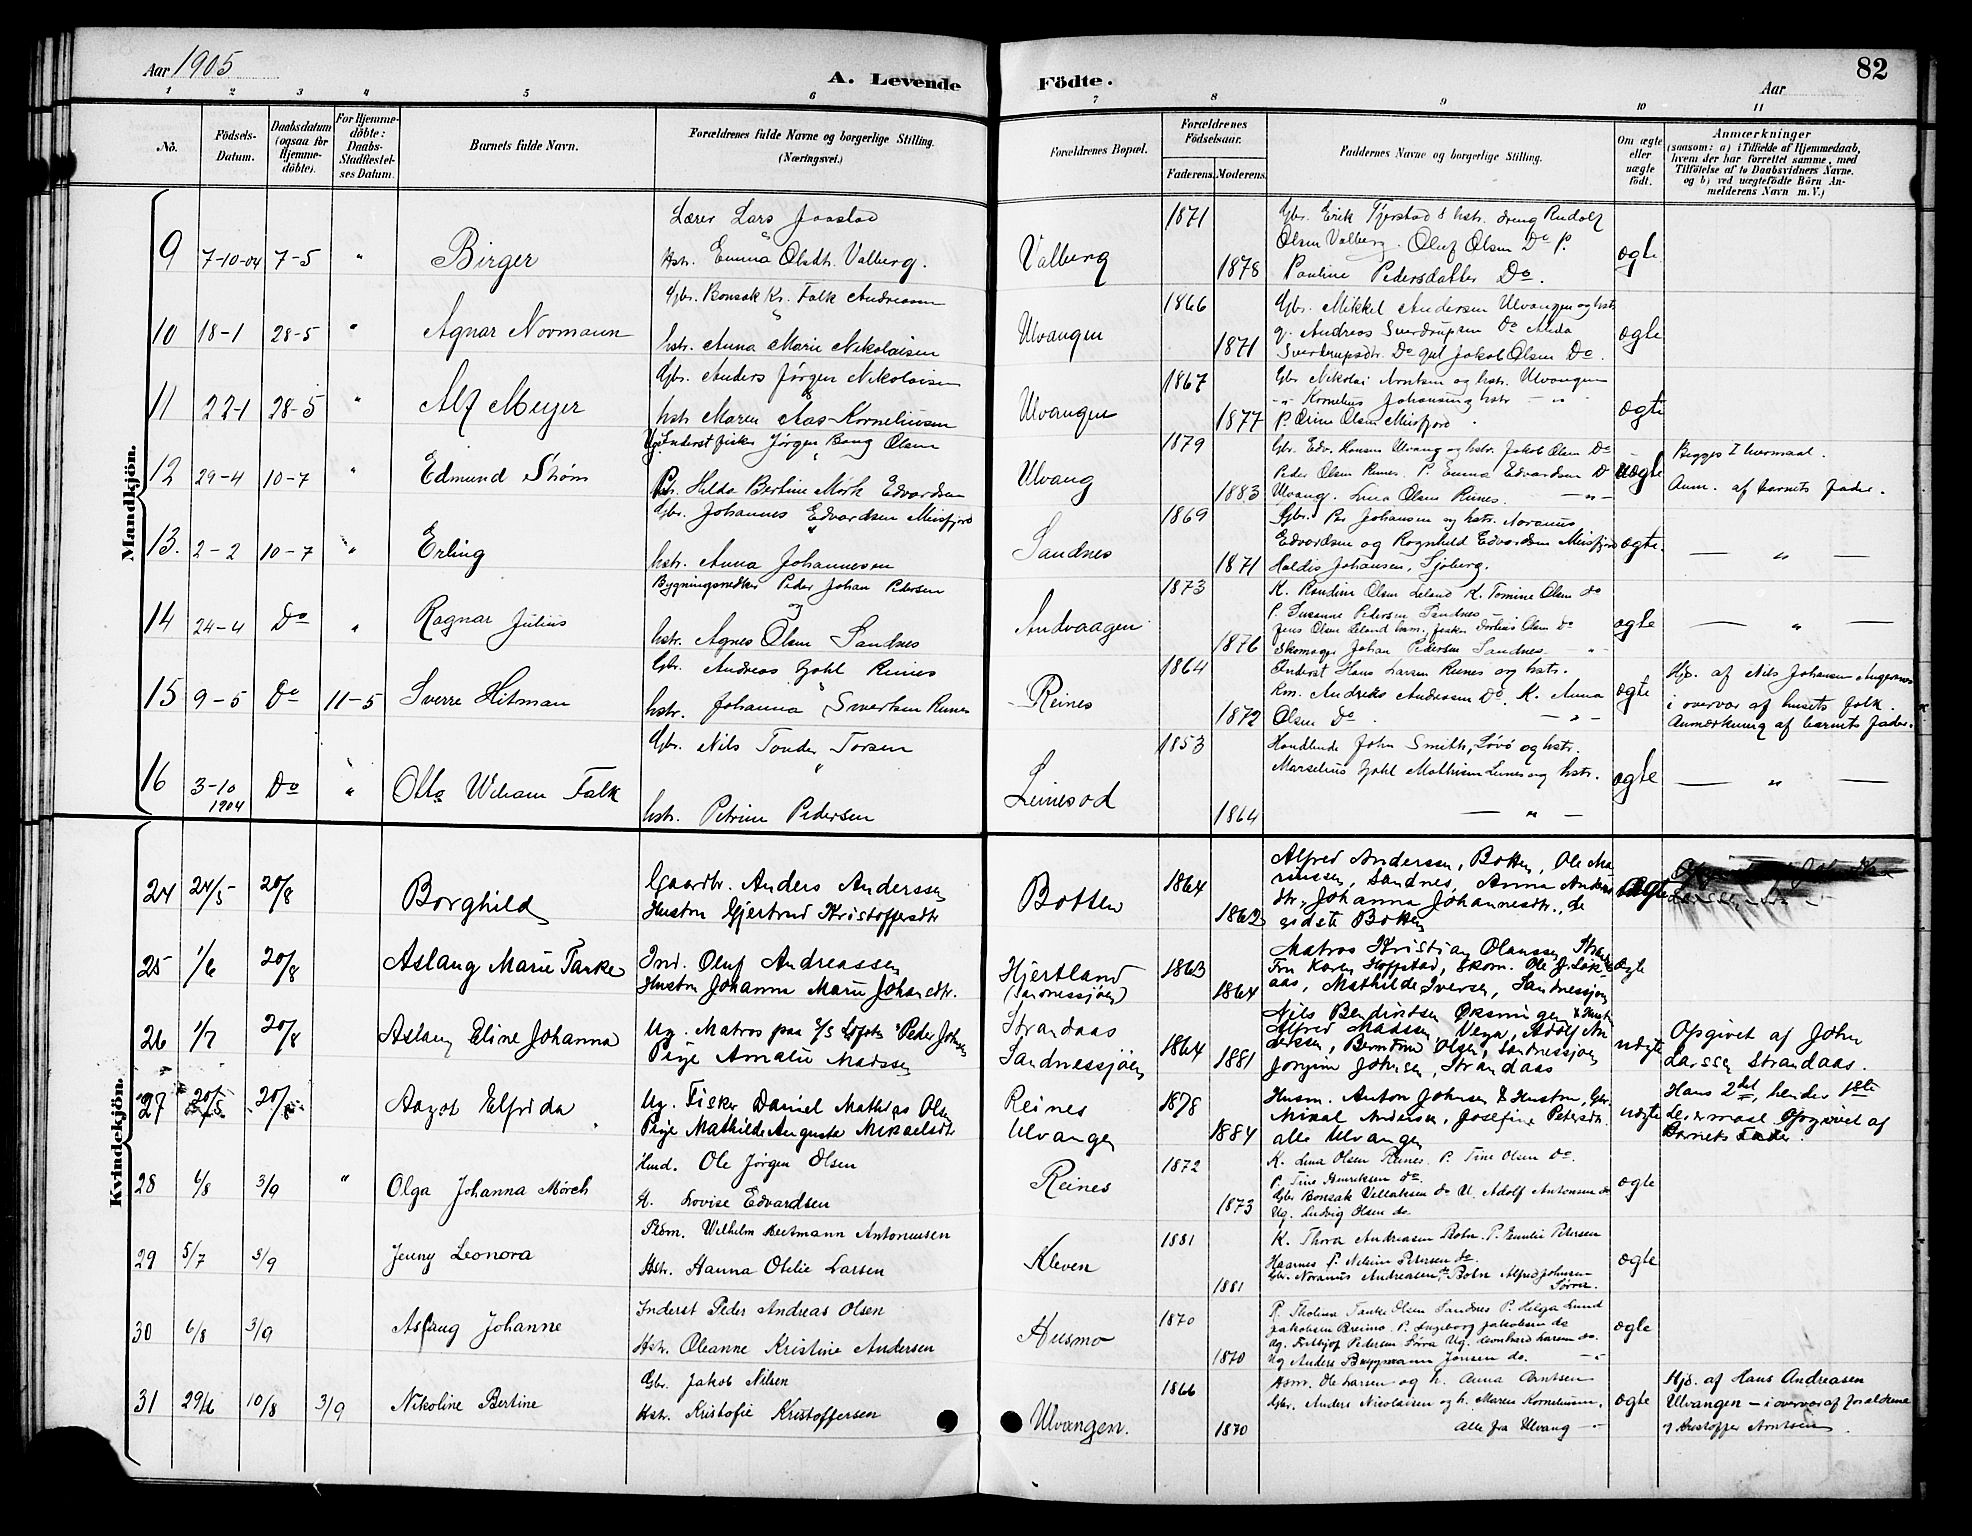 Aar 1905
A. Levende
Födte.
Aar
82
1 2 3 4 5 6 7 8 9 10 11
No.
Födsels-Datum.
Daabsdatum (ogsaa for Hjemme-döbte).
For Hjemme-döbte: Daabs-Stadfæstel-ses Datum.
Barnets fulde Navn.
Forældrenes fulde Navne og borgerlige Stilling. (Næringsvei.)
Forældrenes Bopæl.
Forældrenes Födselsaar.
Faderens. Moderens.
Faddernes Navne og borgerlige Stilling.
Om ægte eller uægte födt.
Anmærkninger
(saasom: a) i Tilfælde af Hjemmedaab,
hvem der har forrettet samme, med
Tilföielse af to Daabsvidners Navne.
og b) ved uægtefödte Börn An-
melderens Navn m. V.)
Mandkjön.
9 7-10-04 7-5 " Birger
Lærer Lars Jaastad
Hstr. Emma Olsdtr. Valberg.
Valberg 1871 1878
Gbr. Erik Tjerstad & hstr. dreng Rudolf
Olsen Valberg. Oluf Olsen Do P.
Pauline Pedersdatter Do.
ægte
10 18-1 28-5 " Agnar Normann
Gbr. Bonsak Kr. Falk Andreasen
hstr. Anna Marie Nikolaisen
Ulvangen 1866 1871
Gbr. Mikkel Andersen Ulvangen og hstr.
g. Andreas Sverdrupsen Do Alida
Sverdrupsdtr. Do gut Jakob Olsen Do.
ægte
11 22-1 28-5 " Alf Meyer
Gbr. Anders Jørgen Nikolaisen
&
hstr Maren Aas-Korneliussen
Ulvangen 1867 1877
Gbr Nikolai Arntsen og hstr. Ulvangen
-"- Kornelius Johansen og hstr - " -
P. Oline Olsen Meisfjord.
ægte
12 29-4 10-7 " Edmund Strøm
Ug. Inderst fisker Jørgen Bang Olsen
P. Hilda Bertine Mørk Edvardsen
Ulvang 1879 1883
Gbr. Edv. Hansen Ulvang og hstr. Jakob Olsen Do
Peder Olsen Reines. P. Emma Edvardsen Do
Ulvang. Lina Olsen Reines. -"-
uægte
Begges I leiermaal.
Anm. af barnets fader.
13. 2-2 10-7 " Erling
Gbr. Johannes Edvardsen Meisfjord
"
hstr. Anna Johannesen
Sandnes 1869 1871
Gbr. Per Johansen og hstr. Noranus
Edvardsen og Ragnhild Edvardsen Meisfjord
Haldis Johansen, Sjøberg.
ægte.
— " —
14 24-4 Do " Ragnar Julius
Bygningssnedker Peder Johan Pedersen
og
hstr. Agnes Olsen Sandnes
Andvaagen 1873 1876
K. Randine Olsen Leland K. Tomine Olsen do
P. Susanne Pedersen Sandnes
Jens Olsen Leland hsm., fisker Dortius Olsen Do
Skomager Johan Pedersen Sandnes - " -
ægte
— " —
15 9-5 Do 11-5 Sverre Hitman
Gbr. Andreas Dahl Reines
"
hstr. Johanna Sivertsen Reines
Reines 1864 1872
Inderst Hans Larsen Reines og hstr.
Km. Andreas Andreasen Do. K. Anna
Olsen Do. - " -
ægte
Hjd. af Nils Johansen
i overvær af husets folk.
Anmerkning af barnets fader.
16 3-10 1904 Do " Otto Wiliam Falk
Gbr. Nils Tonder Torsen
"
hstr. Petrine Pedersen
Leinesod 1853 1864
Handlende John Smith, Løvø og hstr.
Marselius Dahl Mathisen Leines og hstr.
— " —
ægte
— " —
Kvindekjön.
24 24/5 20/8 Borghild
Gaardbr. Anders Anderssen
Hustru Gjertrud Kristoffersdtr
Botten 1864 1862
Alfred Anderssen, Botten, Ole Ma-
riussen, Sandnes, Anna Anders-
dtr, Johanna Johannesdtr., de
sidste Botten
ægte
25 1/6 20/8 Aslaug Marie Tanke
Ind. Oluf Andreassen
Hustru Johanna Marie Johansdtr.
Hjertland
(Sandnessjøen)
1863 1864
Matros Kristian Olaussen,
Fru Karen Hoffstad, Skom. Ole J. Løk-
aas, Mathilde Iversen, Sandnessjøen
ægte
26 1/7 20/8 Aslaug Eline Johanna
Ug. Matros paa S/S Lofoten Peder Johnsen
Pige Amalie Madssen
Strandaas
Sandnessjøen
1864 1881
Nils Bendiktsen Øksningen & Hustru
Alfred Madssen Vega, Adolf An-
derssen, Berntine Olsen, Sandnessjøen
Jorgine Johnsen, Strandaas
uægte
Opgivet af John
Larssen Strandaas.
27 20/5 20/8 Aagot Elfrida
Ug. Fisker Daniel Mathias Olsen
Pige Mathilde Augusta Mikaelsdtr
Reines
Ulvangen
1878 1884
Husm. Anton Johnsen & Hustru, Gbr.
Mikal Andersen, Josefine Petersdtr.
alle Ulvangen
uægte
Hans 2det, hendes 1ste
Leiermaal Opgivet af
Barnets Fader.
28 6/8 3/9 " Olga Johanna Mörch
Hmd. Ole Jörgen Olsen
H. Lovise Edvardsen
Reines 1872 1873
K. Lina Olsen Reines. P. Tine Olsen do.
P. Tine Henriksen do
Gbr Bonsak Villaksen do U. Adolf Antonsen do
Ug. Ludvig Olsen do.
ægte
29 5/7 3/9 Jenny Leonora
Skom. Wilhelm Beitmann Antoniussen
Hstr. Hanna Otelie Larsen
Kleven 1881 1881
K. Thora Andreasen Botn. P. Emilie Petersen
Haarnes P. Nelsine Petersen do
Gbr. Noranus Andreasen, Botn Alfred Johnsen
Sörra.
ægte
30 6/8 3/9 Aslaug Johanne
Inderst Peder Andreas Olsen
Hstr. Oleanne Kristine Andersen
Husmo 1870 1870
P. Tholina Tanke Olsen Sandnes P. Helga Lund
Jakobsen Breimo. P. Ingeborg Jakobsen do
Ug. Fridtjof Pedersen Sörra Ug. Leonhard Larsen do.
Ug Anders Buggmann Jensen do. - " -
ægte
31 29/6 10/8 3/9 Nikoline Bertine
Gbr. Jakob Nilsen
Hstr. Kristofie Kristoffersen
Ulvangen. 1866 1870
Hsm. Ole Larsen og h. Anna Arntsen
Gbr. Anders Nicolaisen og h. Maren Korneliussen,
Alle fra Ulvang - " -
ægte
Hjd. af Hans Andreasen
Ulvangen - i overvær af forældrene
og Kristoffer Arntsen.